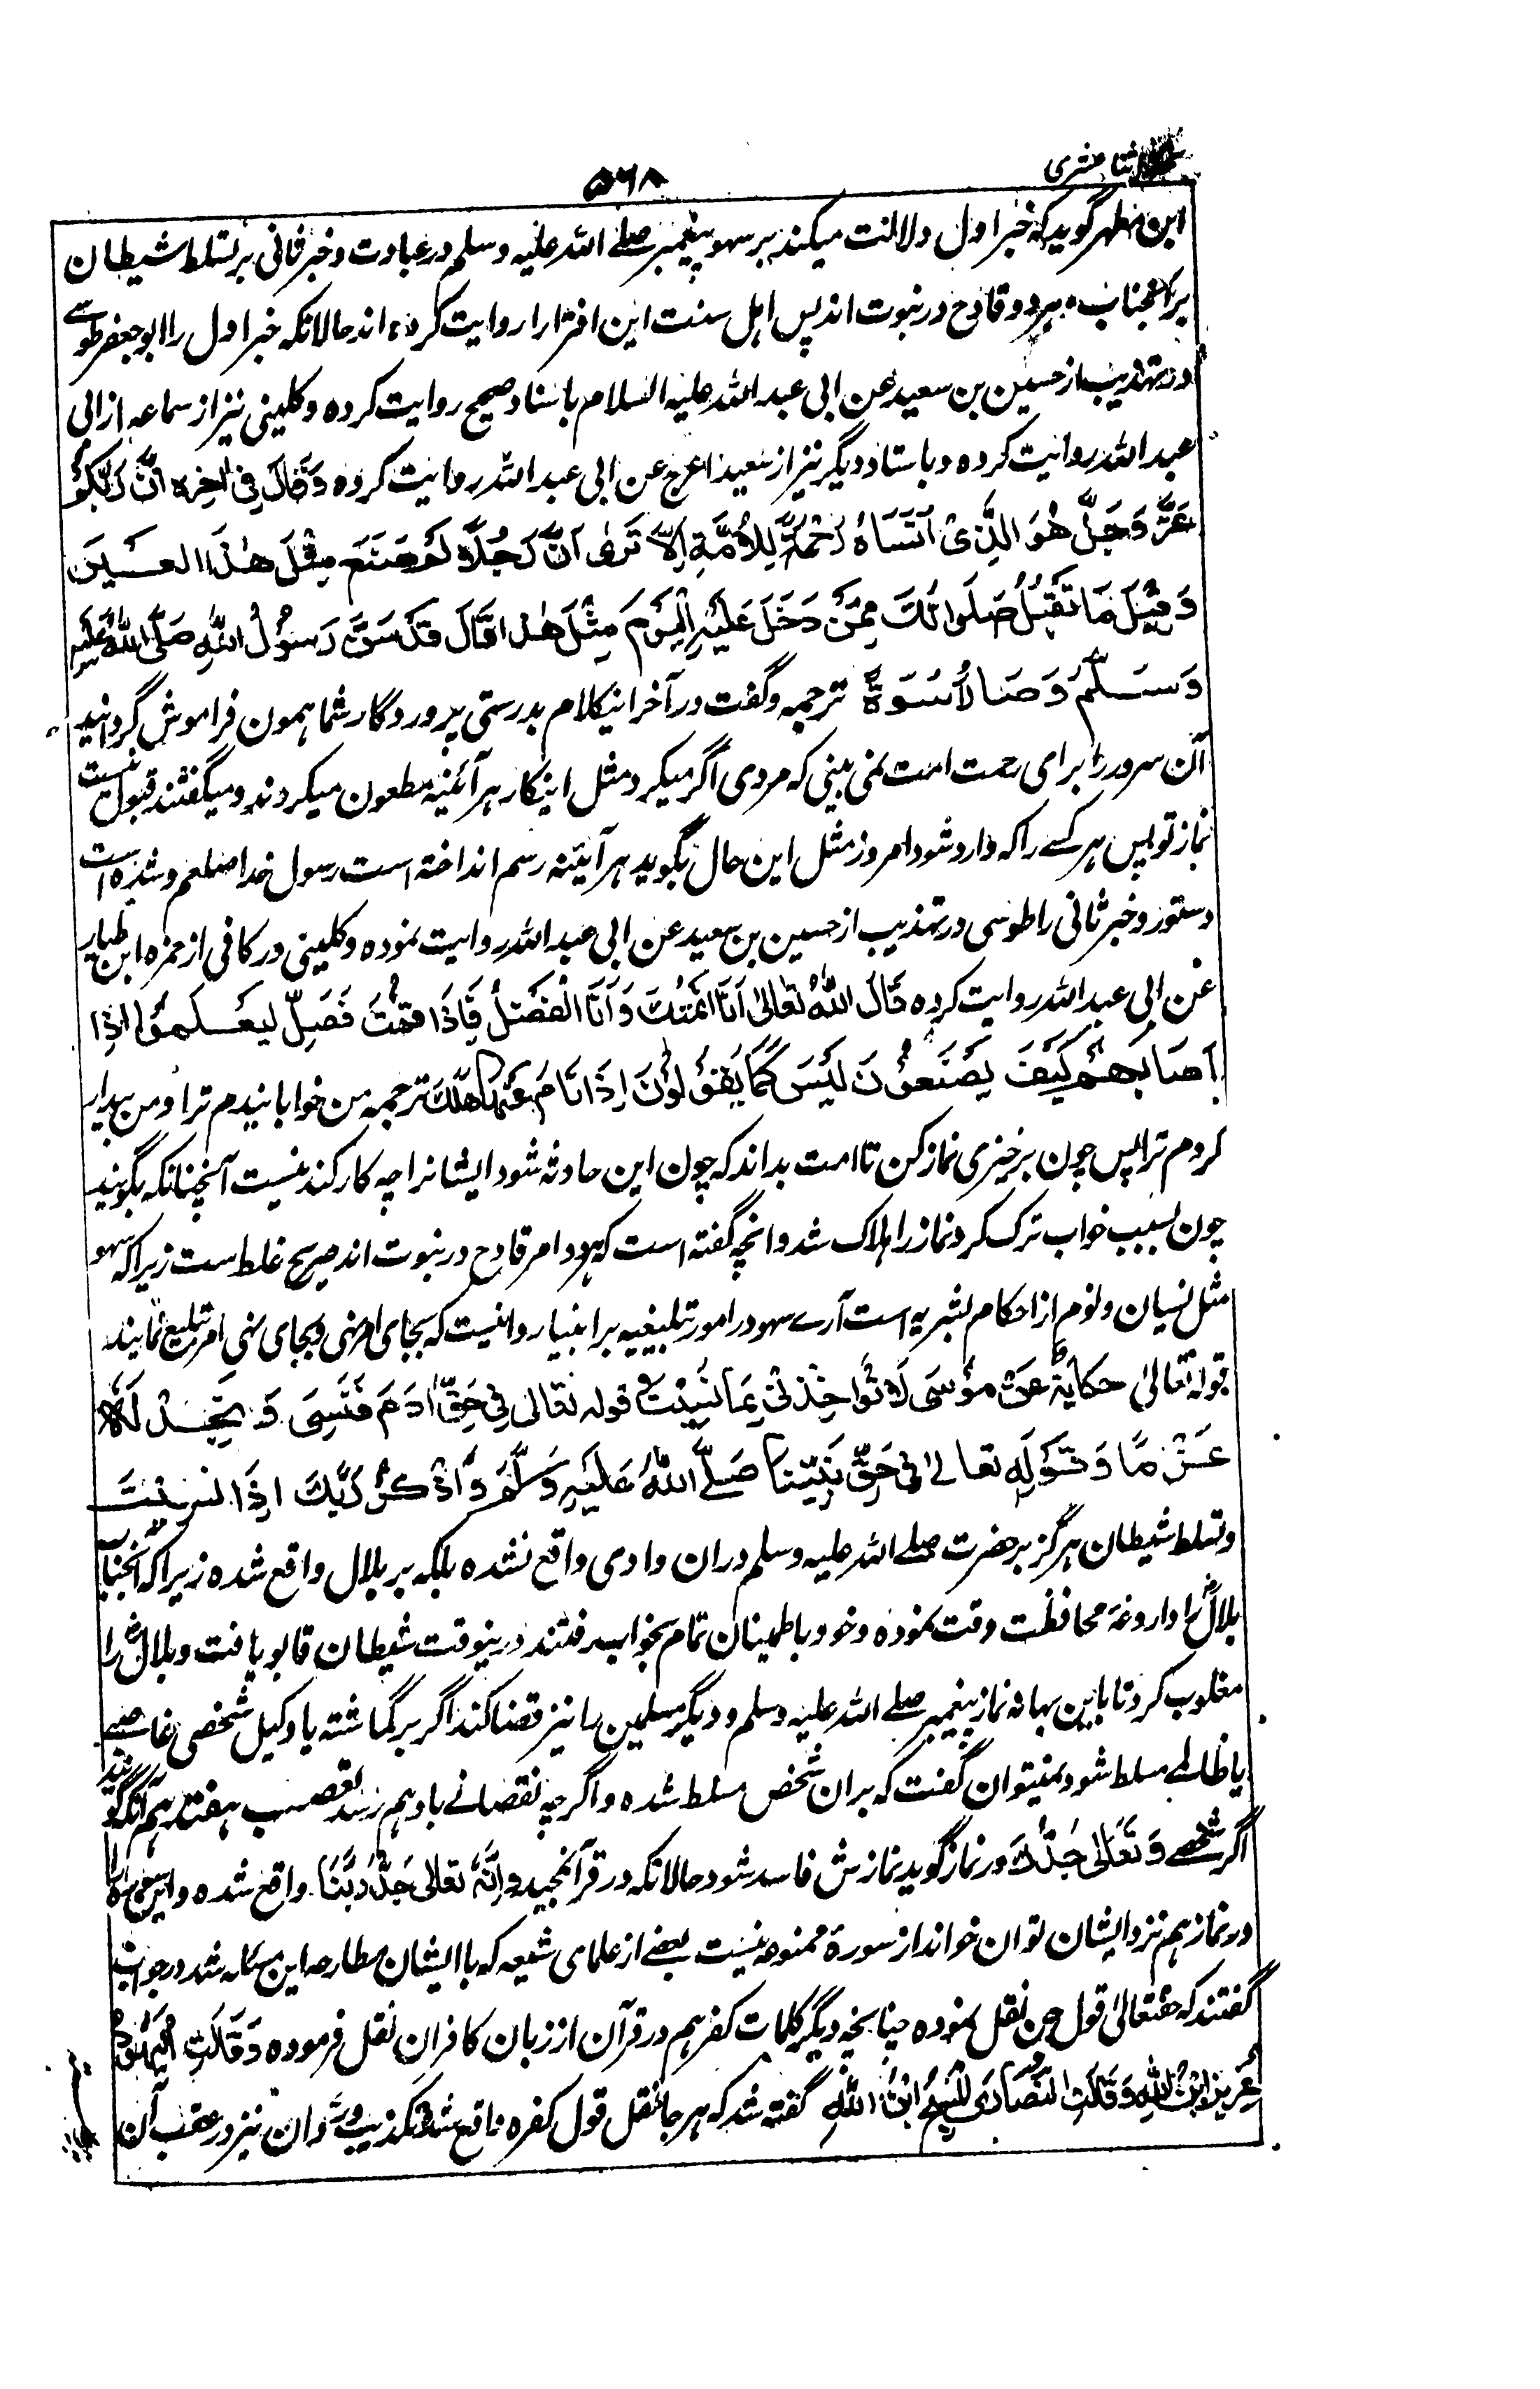 اثنا عشری
۵۶۸
ابن مطهر گوید که خبر اول دلالت میکند بر سهو پیغمبر صلے الله علیه وسلم در عبادت و خبر ثانی بر تسلط شیطان
بر آنجناب و هر دو قادح در نبوت اند پس اهل سنت این افترا را روایت کرده اند حالانکه خبر اول را ابو جعفر طوسے
در تهذیب از حسین بن سعید عن ابی عبد الله علیه السلام باسناد صحیح روایت کرده و کلینی نیز از سماعه از ابی
عبد الله روایت کرده و باسناد دیگر نیز از سعید اعرج عن ابی عبد الله روایت کرده وَقَالَ فِی اٰخِرِه اَنَّ رَبَّكُمْ
عَزَّ وَجَلَّ هُوَ الَّذِیْ اَنْسَاهُ رَحْمَةً لِلْاُمَّةِ اَلَا تَرٰی اَنَّ رَجُلًا لَوْ صَنَعَ مِثْلَ هٰذَا لَعُیِّرَ
وَقِیْلَ مَا تُقْبَلُ صَلٰوتُكَ فَمَنْ دَخَلَ عَلَیْهِ الْیَوْمَ مِثْلَ هٰذَا قَالَ قَدْ سَنَّ رَسُوْلُ اللّٰهِ صَلَّی اللّٰهُ عَلَیْهِ
وَسَلَّمَ وَصَارَ اُسْوَةً ترجمه و گفت در آخر اینکلام بدرستی پروردگار شما همون فراموش گردانید
آن سرور را برای رحمت امت نمی بینی که مردی اگر میکرد مثل اینکار هر آئینه مطعون میکردند و میگفتند قبول نیست
نماز تو پس هر کسے را که وارد شود امروز مثل این حال بگوید هر آیئنه رسم انداخته است رسول خدا صلعم و شده است
دستور و خبر ثانی را طوسی در تهذیب از حسین بن سعید عن ابی عبد الله روایت نموده و کلینی در کافی از حمزه ابن طیار
عن ابی عبد الله روایت کرده قَالَ اللّٰهُ تَعَالٰی اَنَا اَنَمْتُكَ وَاَنَا اَیْقَظْتُكَ فَاِذَا قُمْتَ فَصَلِّ لِیَعْلَمُوْا اِذَا
اَصَابَهُمْ كَیْفَ یَصْنَعُوْنَ لَیْسَ كَمَا یَقُوْلُوْنَ اِذَا نَامَ عَنْهَا هَلَكَ ترجمه من خوابانیدم ترا و من بیدار
کردم ترا پس چون برخیزی نماز کن تا امت بداند که چون این حادثه شود ایشانرا چه کار کند نیست آنچنانکه بگویند
چون بسبب خواب ترک کرد نماز را هلاک شد و انچه گفته است که هر دو امر قادح در نبوت اند صریح غلط است زیرا که سهو
مثل نسیان و نوم از احکام بشریه است آرے سهو در امور تبلیغیه بر انبیا روا نیست که بجای امر نهی و بجای نهی امر تبلیغ نمایند
قوله تَعَالٰی حکایة عَنْ مُوْسٰی لَا تُؤَاخِذْنِیْ بِمَا نَسِیْتُ و قوله تعالی فِیْ حَقِّ اٰدَمَ فَنَسِیَ وَلَمْ نَجِدْ لَهٗ
عَزْمًا وَقَوْلِهٖ تعالیٰ فِیْ حَقِّ نَبِیِّنَا صَلَّے اللّٰهُ عَلَیْهِ وَسَلَّمَ وَاذْكُرْ رَبَّكَ اِذَا نَسِیْتَ
و تسلط شیطان هرگز بر حضرت صلے الله علیه وسلم دران وادی واقع نشده بلکه بر بلال واقع شده زیرا که آنجناب
بلالؓ را داروغه محافظت وقت نموده و خود باطمینان تمام بخواب رفتند درینوقت شیطان قابو یافت و بلالؓ را
مغلوب کرد تا باین بهانه نماز پیغمبر صلے الله علیه وسلم و دیگر مسلمین را نیز قضا کند اگر بر گماشته یا وکیل شخصی غاصبے
یا ظالمے مسلط شود نمیتوان گفت که بران شخص مسلط شده و اگرچه نقصانے باو هم رسد تعصب هفتدهم آنکه گویند
اگر شخصے وَتَعَالٰی جَدُّكَ در نماز گوید نمازش فاسد شود حالانکه در قرآنمجید وَاِنَّهٗ تعالی جَدُّ رَبِّنَا واقع شده و این سوره را
در نماز هم نزد ایشان توان خواند از سورهٔ ممنوعه نیست بعضے از علمای شیعه که با ایشان مطارحه این مسئله شد در جواب
گفتند که حقتعالیٰ قول جن نقل نموده چنانچه دیگر کلمات کفر هم در قرآن از زبان کافران نقل فرموده وَقَالَتِ الْیَهُوْدُ
عُزَیْرُ ابْنُ اللّٰهِ وَقَالَتِ النَّصَارَی الْمَسِیْحُ ابْنُ اللّٰهِ گفته شد که هر جا نقل قول کفره واقع شده تکذیب و رد آن نیز در عقب آن